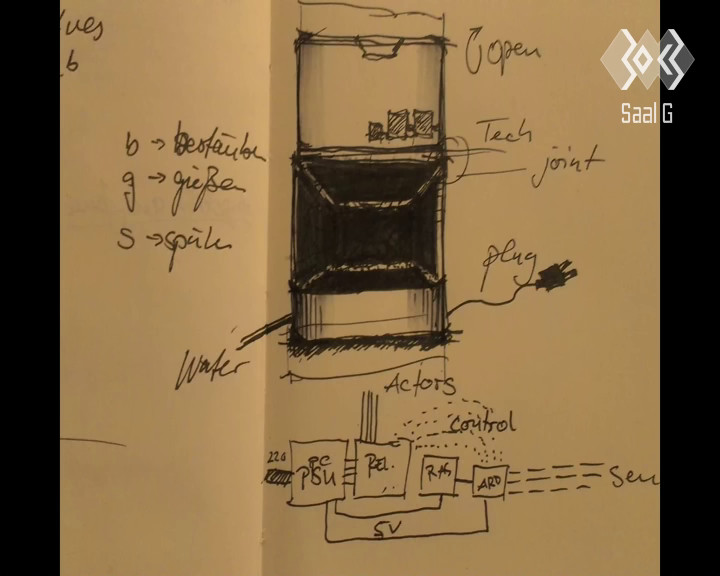 b
b → bestäuben
g → gießen
S →
open
Tech
joint
plug
Water
Actors
control
220
PC
PSU
REL.
RAS
ARD
Sen
5V
SOS
Saal G